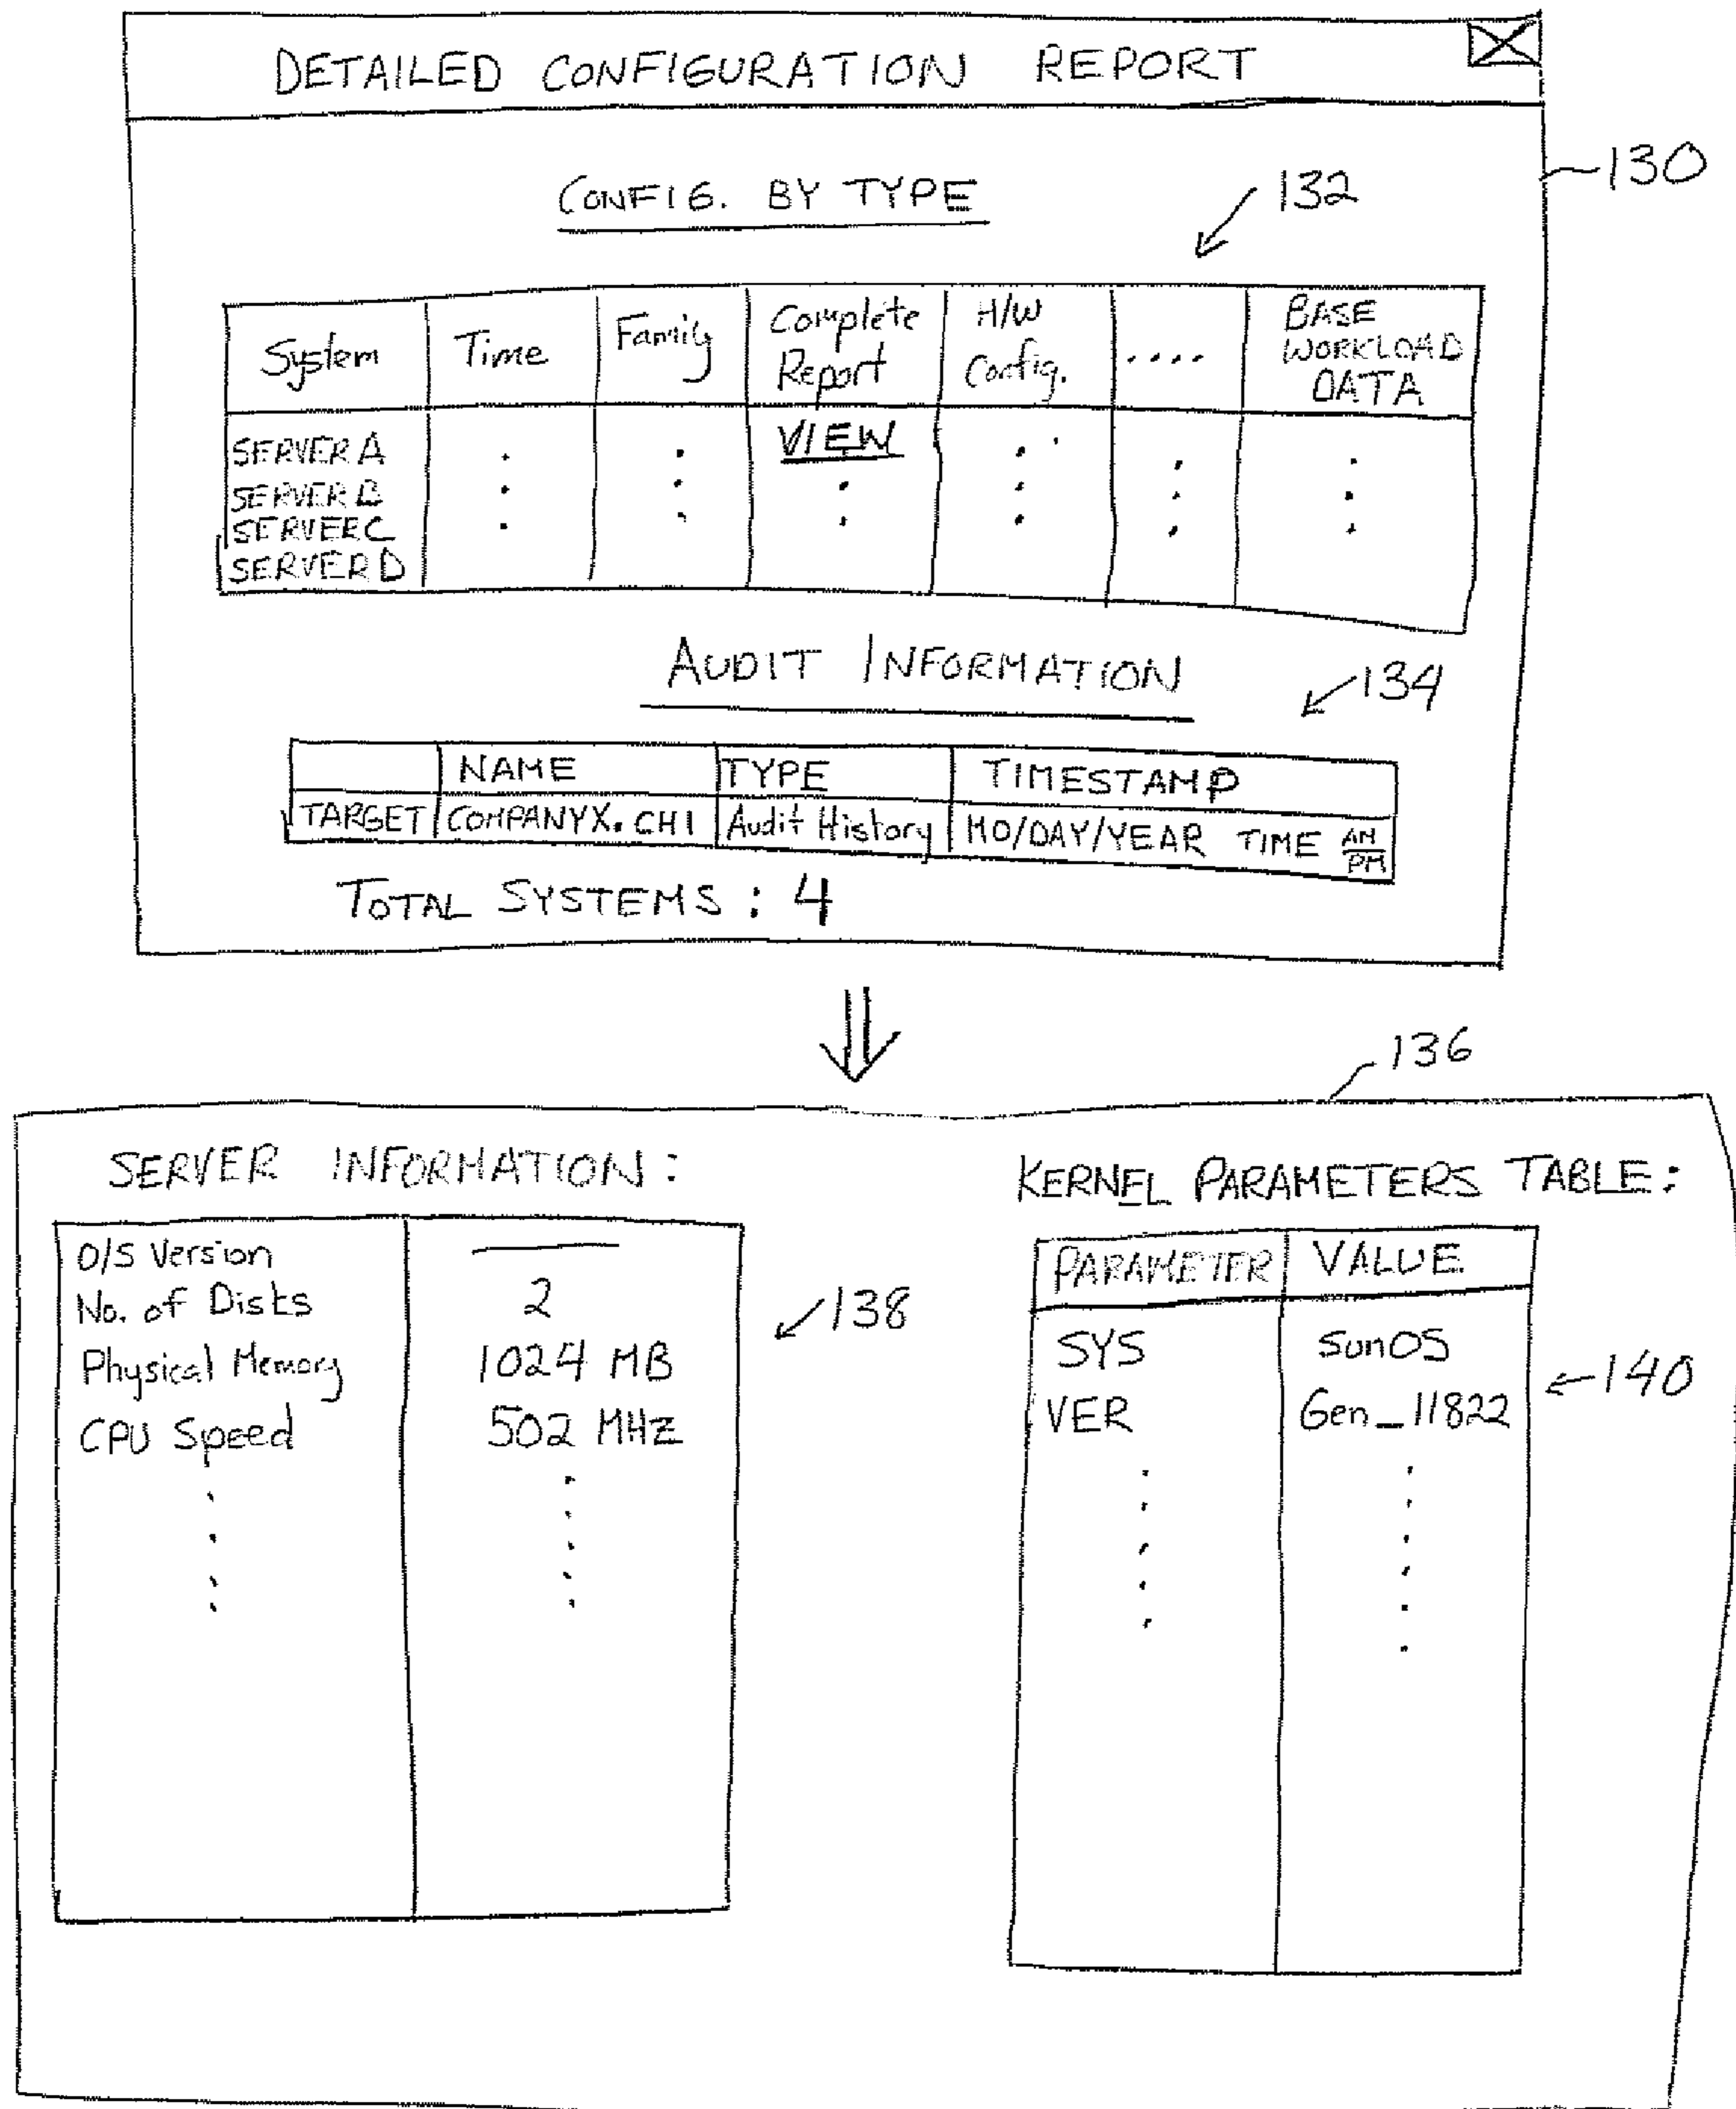 DETAILED CONFIGURATION REPORT
130
CONFIG. BY TYPE
132
System Time Family Complete Report H/W Config. .... BASE WORKLOAD DATA
SERVER A VIEW
SERVER B
SERVER C
SERVER D
AUDIT INFORMATION
134
NAME TYPE TIMESTAMP
TARGET COMPANYX.CHI Audit History MO/DAY/YEAR TIME AM/PM
TOTAL SYSTEMS : 4
136
SERVER INFORMATION:
O/S Version
No. of Disks 2
Physical Memory 1024 MB
CPU Speed 502 MHz
138
KERNEL PARAMETERS TABLE:
PARAMETER VALUE
SYS SunOS
VER Gen_11822
140